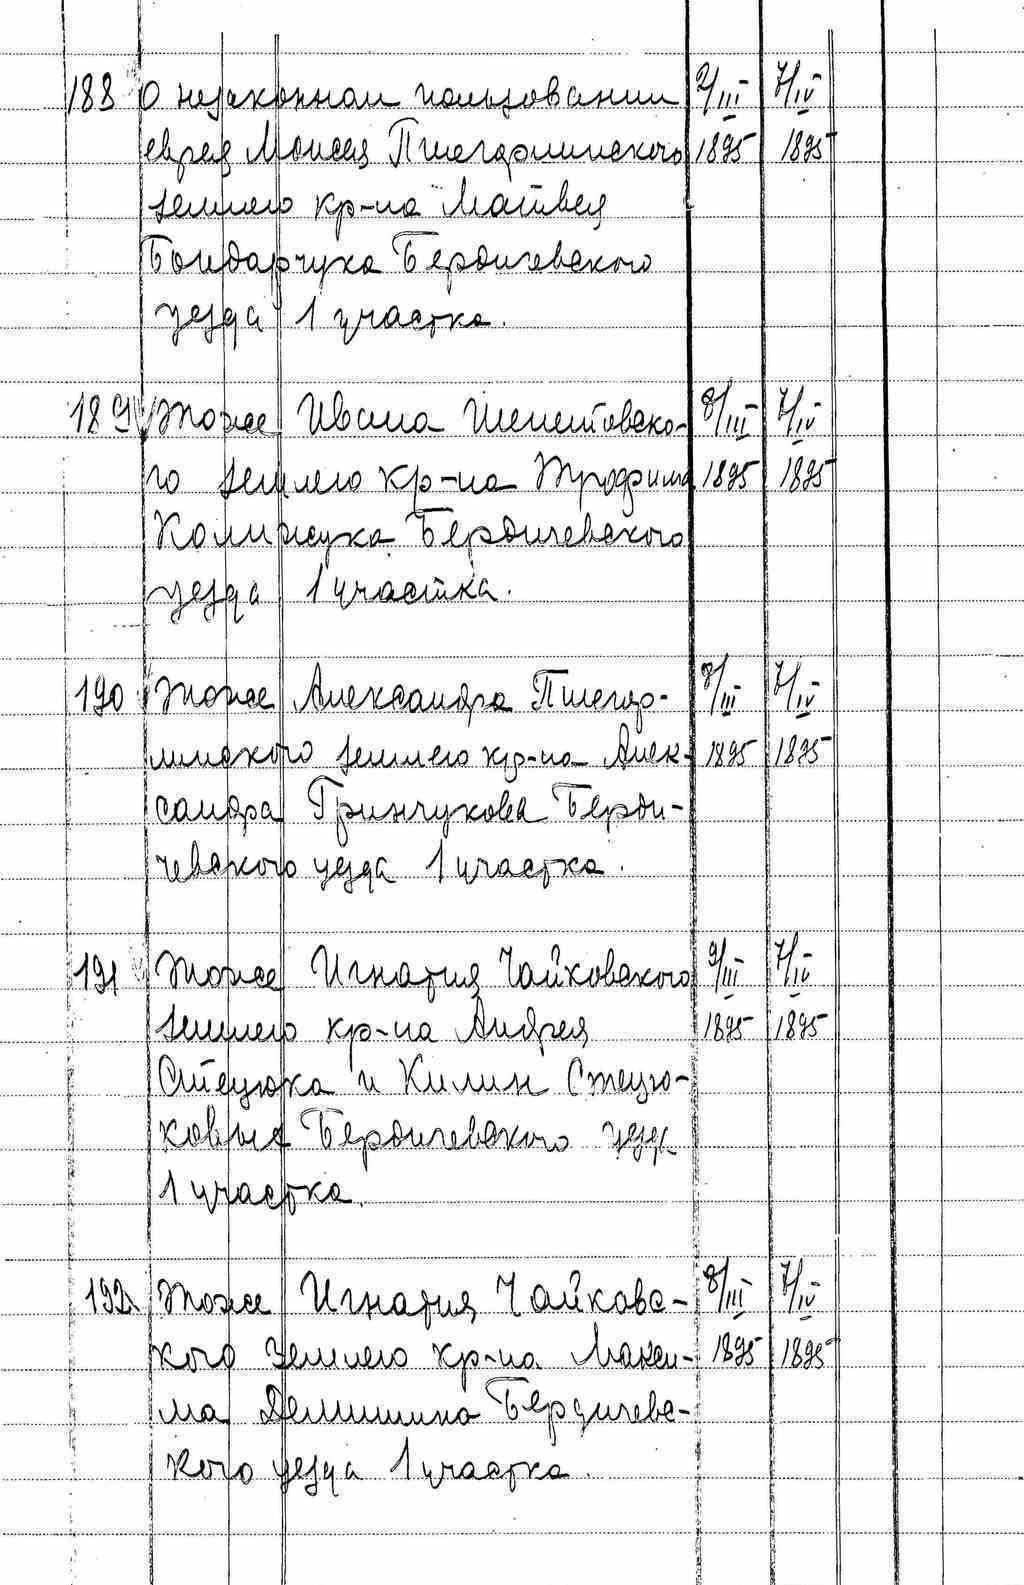 188 О незаконном пользовании 2/III 7/IV
еврея Моисея Пшегорлинского 1895 1895
землею кр-на Матвея
Бондарчука Бердичевского
уезда 1 участка.
189 Тоже Ивана Шепетовско- 8/III 7/IV
го землею кр-на Трофима 1895 1895
Бердичевского
уезда 1 участка.
190 Тоже Александра Пшегор- 8/III 7/IV
линского землею кр-на Алек- 1895 1895
сандра Гринчукова Берди-
чевского уезда 1 участка.
191 Тоже Игнатия Чайковского 9/III 7/IV
землею кр-на Андрея 1895 1895
Стецюка и Килин Стецю-
ковых Бердичевского уезда
1 участка.
192 Тоже Игнатия Чайковс- 8/III 7/IV
кого землею кр-на Макси- 1895 1895
ма Демишина Бердичевс-
кого уезда 1 участка.